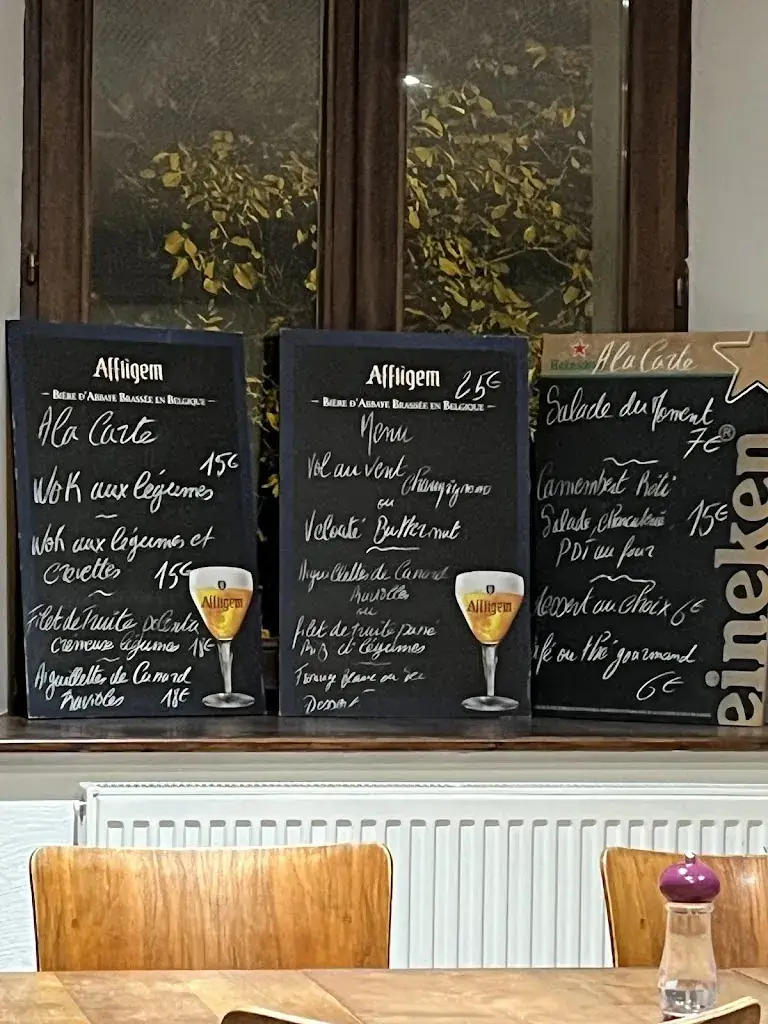 Affligem
BIÈRE D'ABBAYE BRASSÉE EN BELGIQUE
A la Carte
15€
Wok aux légumes
Wok aux légumes et
crevettes 15€
Filet de truite polenta
crémeuse légumes 18€
Aiguillettes de Canard
Ravioles 18€
Affligem
Affligem 25€
BIÈRE D'ABBAYE BRASSÉE EN BELGIQUE
Menu
Vol au vent
Champignons
ou
Velouté Butternut
Aiguillettes de Canard
Ravioles
ou
filet de truite pané
Riz légumes
Fromage blanc ou sec
Dessert
Affligem
Heineken A la Carte
Salade du Moment
7€
Camembert Rôti
Salade, charcuterie 15€
PDT au four
dessert au choix 6€
café ou thé gourmand
6€
Heineken®